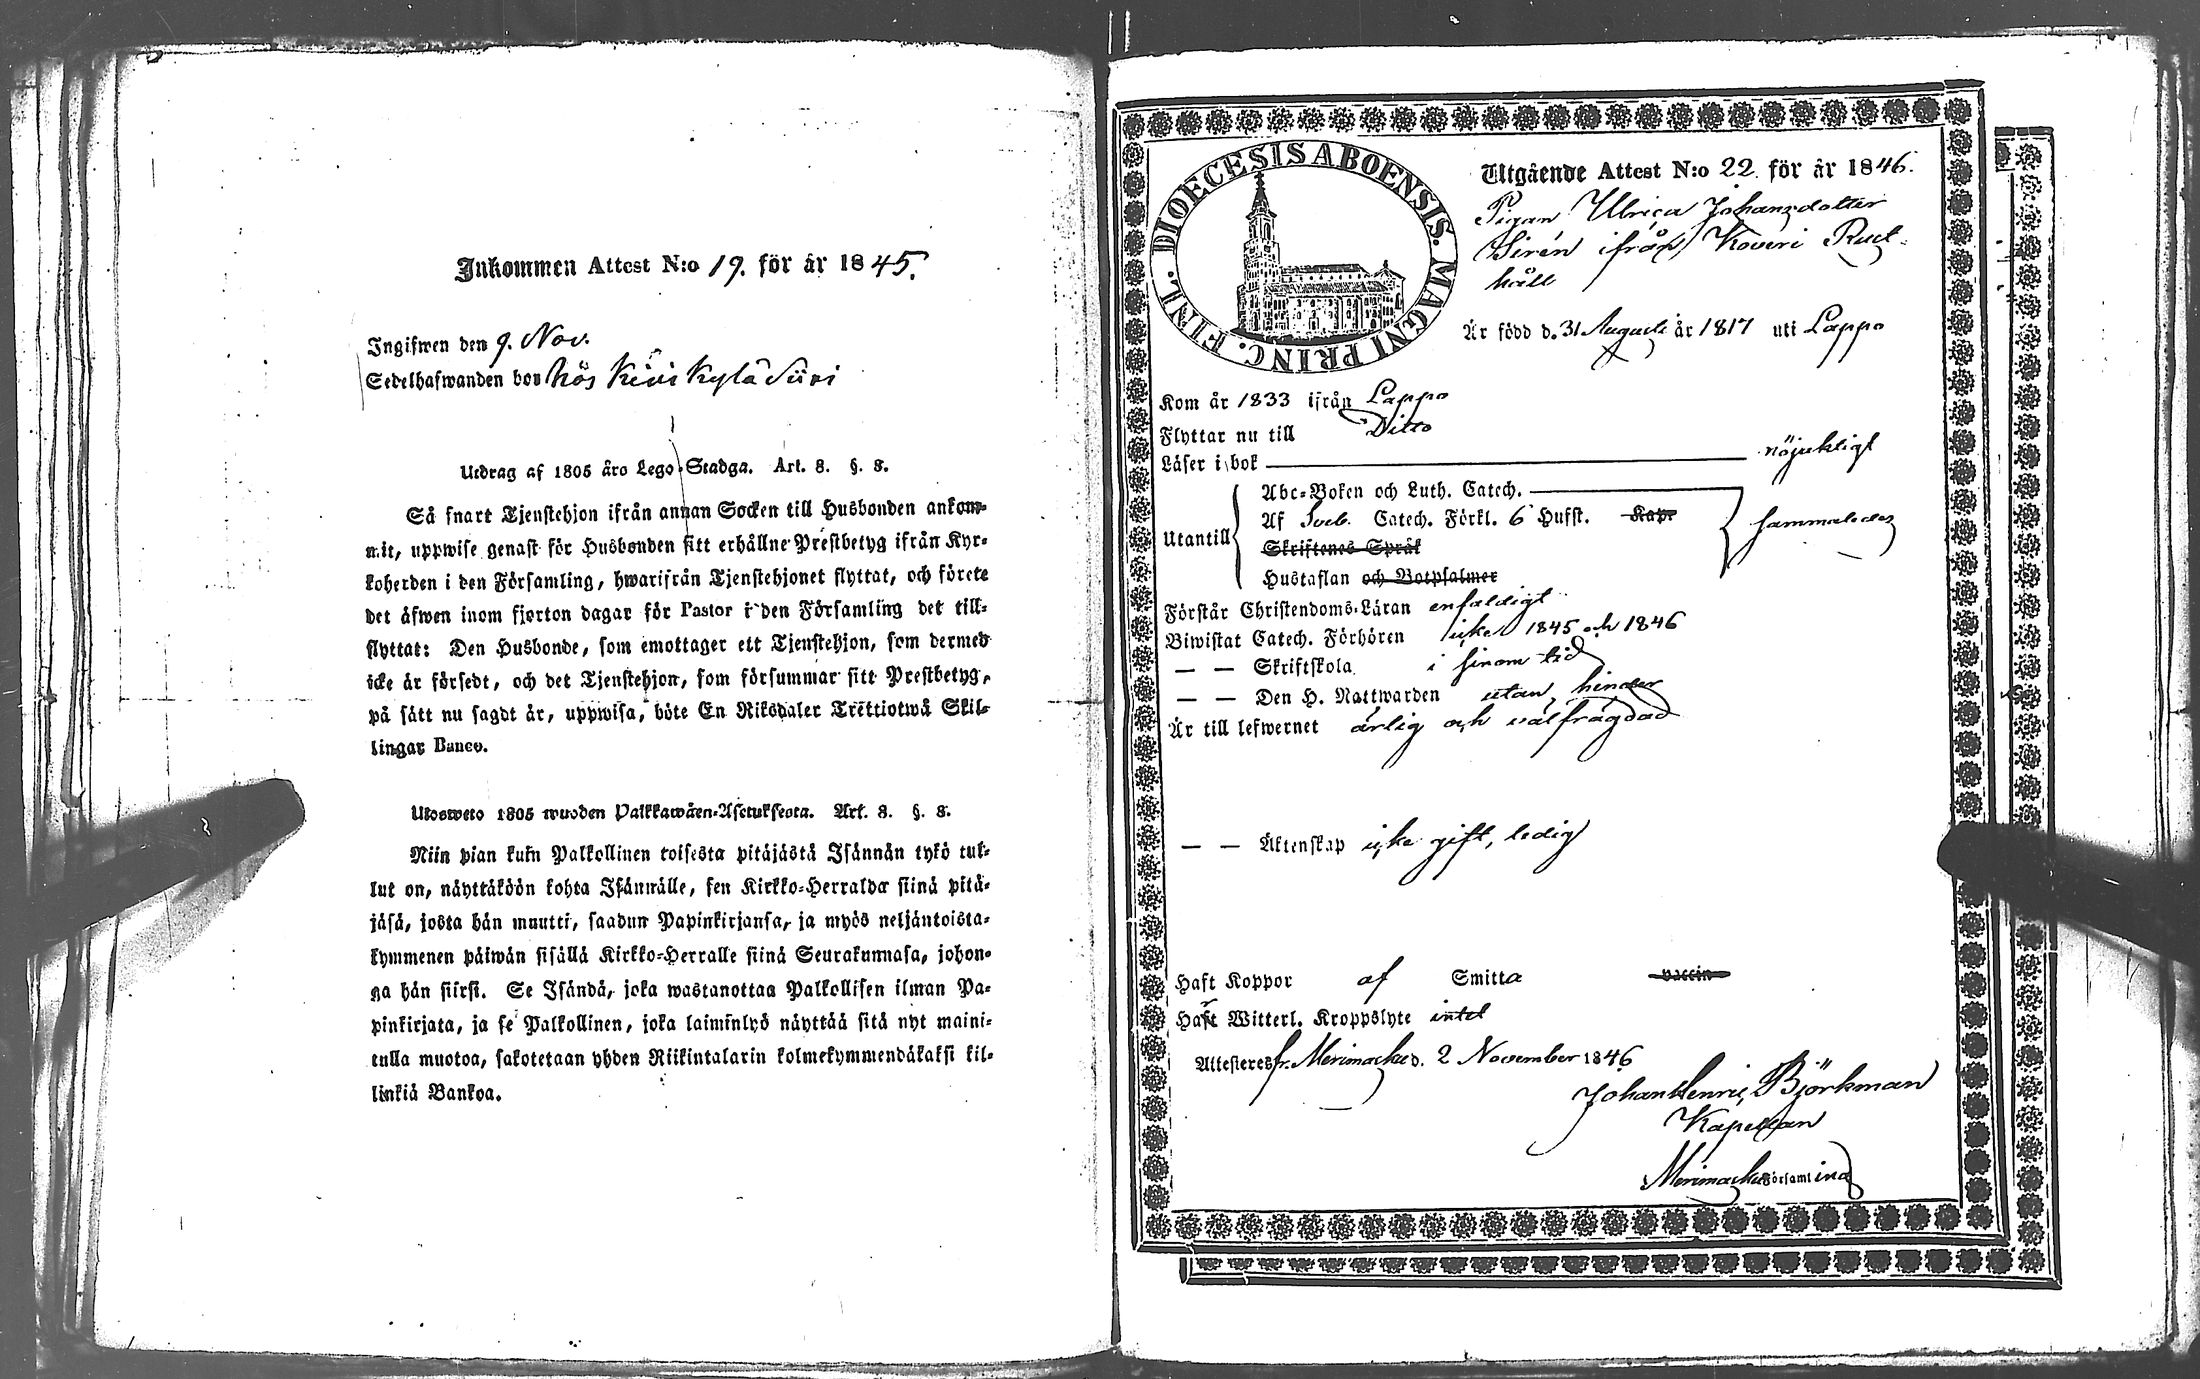 Inkommen Attest N:o 19. för år 1845.
Ingifwen den 9. Nov.
Sedelhafwanden bor hos Kivikylä Siiri
Utdrag af 1805 åro Lego-Stadga. Art. 8. §. 8.
Så snart Tjenstehjon ifrån annan Socken till Husbonden ankom-
mit, uppwise genast för Husbonden sitt erhållne Prestbetyg ifrån Kyr-
koherden i den Församling, hwarifrån Tjenstehjonet flyttat, och förete
det äfwen inom fjorton dagar för Pastor i den Församling det till-
flyttat: Den Husbonde, som emottager ett Tjenstehjon, som dermed
icke är försedt, och det Tjenstehjon, som försummar sitt Prestbetyg,
på sätt nu sagdt är, uppwisa, böte En Riksdaler Trettiotwå Skil-
lingar Banco.
Ulosweto 1805 wuoden Palkkawäen-Asetuksesta. Art. 8. §. 8.
Niin pian kuin Palkollinen toisesta pitäjästä Isännän tykö tul-
lut on, näyttäköön kohta Isännälle, sen Kirkko-Herralda siinä pitä-
jäsä, josta hän muutti, saadun Papinkirjansa, ja myös neljäntoista-
kymmenen päiwän sisällä Kirkko-Herralle siinä Seurakunnasa, johon-
ga hän siirsi. Se Isändä, joka wastanottaa Palkollisen ilman Pa-
pinkirjata, ja se Palkollinen, joka laiminlyö näyttää sitä nyt maini-
tulla muotoa, sakotetaan yhden Riikintalarin kolmekymmendäkaksi kil-
linkiä Bankoa.
DIOECESIS ABOENSIS. MAGNI PRINC. FINL.
Utgående Attest N:o 22. för år 1846.
Pigan Ulrica Johansdotter
Sirén ifrån Koveri Rust-
håll
Är född d. 31 Augusti år 1817 uti Lappo
Kom år 1833 ifrån Lappo
Flyttar nu till Ditto
Läser i bok nöjaktigt
Abc-Boken och Luth. Catech.
Utantill Af Sveb. Catech. Förkl. 6 Hufst. Kap. sammaledes
Skriftenes Språk
Hustaflan och Botpsalmer
Förstår Christendoms-Läran enfaldigt
Biwistat Catech. Förhören icke 1845 och 1846
— — Skriftskola i sinom tid
— — Den H. Nattwarden utan hinder
Är till lefwernet ärlig och välfrägdad
— — Äktenskap icke gift, ledig
Haft Koppor af Smitta vaccin
Har Witterl. Kroppslyte intet
Attesteres fr. Merimasku d. 2 November 1846
Johan Henric Björkman
Kapellan
Merimasku Församling